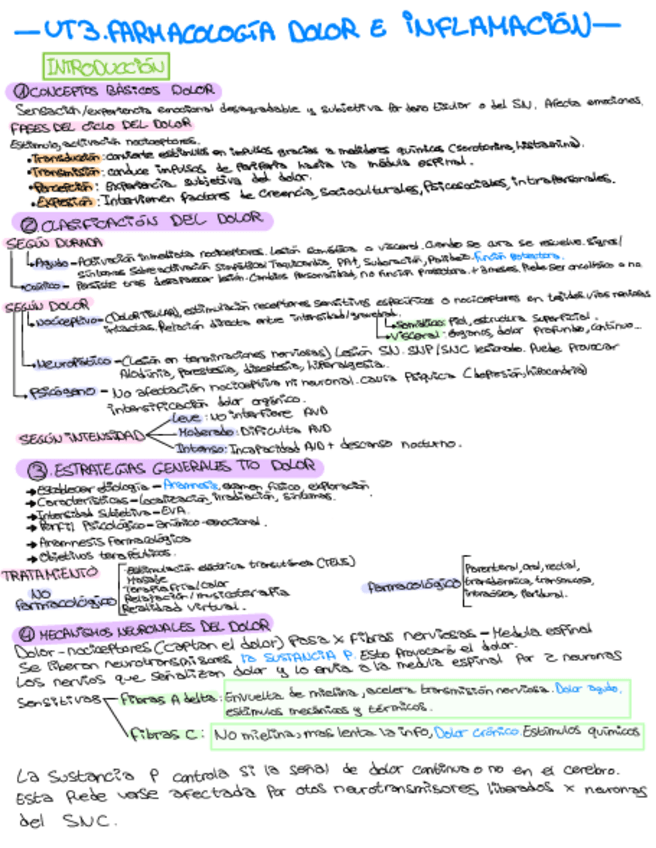 —UT3.FARMACOLOGÍA DOLOR E INFLAMACIÓN—
INTRODUCCIÓN
① CONCEPTOS BÁSICOS DOLOR
Sensación/experiencia emocional desagradable y subjetiva por daño tisular o del SN. Afecta emociones.
FASES DEL CICLO DEL DOLOR
Estímulo, activación nociceptores.
• Transducción: convierte estímulos en impulsos gracias a mediadores químicos (serotonina, histamina).
• Transmisión: conduce impulsos de periferia hacia la médula espinal.
• Percepción: Experiencia subjetiva del dolor.
• Expresión: Intervienen factores de creencia, socioculturales, psicosociales, intrapersonales.
② CLASIFICACIÓN DEL DOLOR
SEGÚN DURADA
Agudo - Activación inmediata nociceptores. Lesión somática o visceral. Cuando se cura se resuelve. Signos/
síntomas sobreactivación simpática: Taquicardia, PA↑, sudoración, palidez. función protectora.
Crónico - Persiste tras desaparecer lesión. Cambios personalidad, no función protectora. + 3 meses. Puede ser oncológico o no
SEGÚN DOLOR
Nociceptivo - (DOLOR TISULAR), estimulación receptores sensitivos específicos o nociceptores en tejidos. vías nerviosas
intactas. Relación directa entre intensidad/gravedad.
Somático: Piel, estructura superficial.
Visceral: órganos, dolor profundo, continuo...
Neuropático - (Lesión en terminaciones nerviosas) Lesión SN. SNP/SNC lesionado. Puede provocar
Alodinia, parestesia, disestesia, hiperalgesia.
Psicógeno - No afectación nociceptiva ni neuronal. causa psíquica (depresión, hipocondria)
intensificación dolor orgánico.
SEGÚN INTENSIDAD
Leve: No interfiere AVD
Moderado: Dificulta AVD
Intenso: Incapacidad AVD + descanso nocturno.
③. ESTRATEGIAS GENERALES TTO DOLOR
→ Establecer etiología - Anamnesis, examen físico, exploración
→ Características - localización, irradiación, síntomas.
→ Intensidad subjetiva - EVA.
→ Perfil Psicológico - anímico-emocional.
→ Anamnesis farmacológica
→ Objetivos terapéuticos.
TRATAMIENTO
NO farmacológico
Estimulación eléctrica transcutánea (TENS)
Masaje
Terapia frío/calor
Relajación/musicoterapia
Realidad virtual.
Farmacológico
Parenteral, oral, rectal,
transdérmica, transmucosa,
intraósea, peridural.
④ MECANISMOS NEURONALES DEL DOLOR
Dolor - nociceptores (captan el dolor) pasa x fibras nerviosas - Medula espinal
Se liberan neurotransmisores la SUSTANCIA P. Esto provocará el dolor.
Los nervios que señalizan dolor y lo envía a la medula espinal por 2 neuronas
sensitivas
Fibras A delta: Envuelta de mielina, acelera transmisión nerviosa. Dolor agudo,
estímulos mecánicos y térmicos.
Fibras C: No mielina, mas lenta la info, Dolor crónico. Estímulos químicos
La sustancia P controla si la señal de dolor continua o no en el cerebro.
Esta puede verse afectada por otos neurotransmisores liberados x neuronas
del SNC.